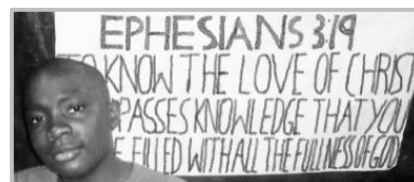 EPHESIANS 3:19
TO KNOW THE LOVE OF CHRIST
PASSES KNOWLEDGE THAT YOU
FILLED WITH ALL THE FULLNESS OF GOD